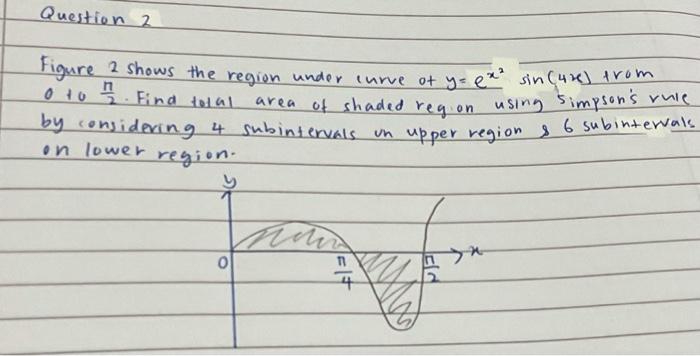 Question 2
Figure 2 shows the region under curve of y = e^x² sin(4x) from
0 to π/2. Find total area of shaded region using Simpson's rule
by considering 4 subintervals on upper region & 6 subintervals
on lower region.
y
0 π/4 π/2 x